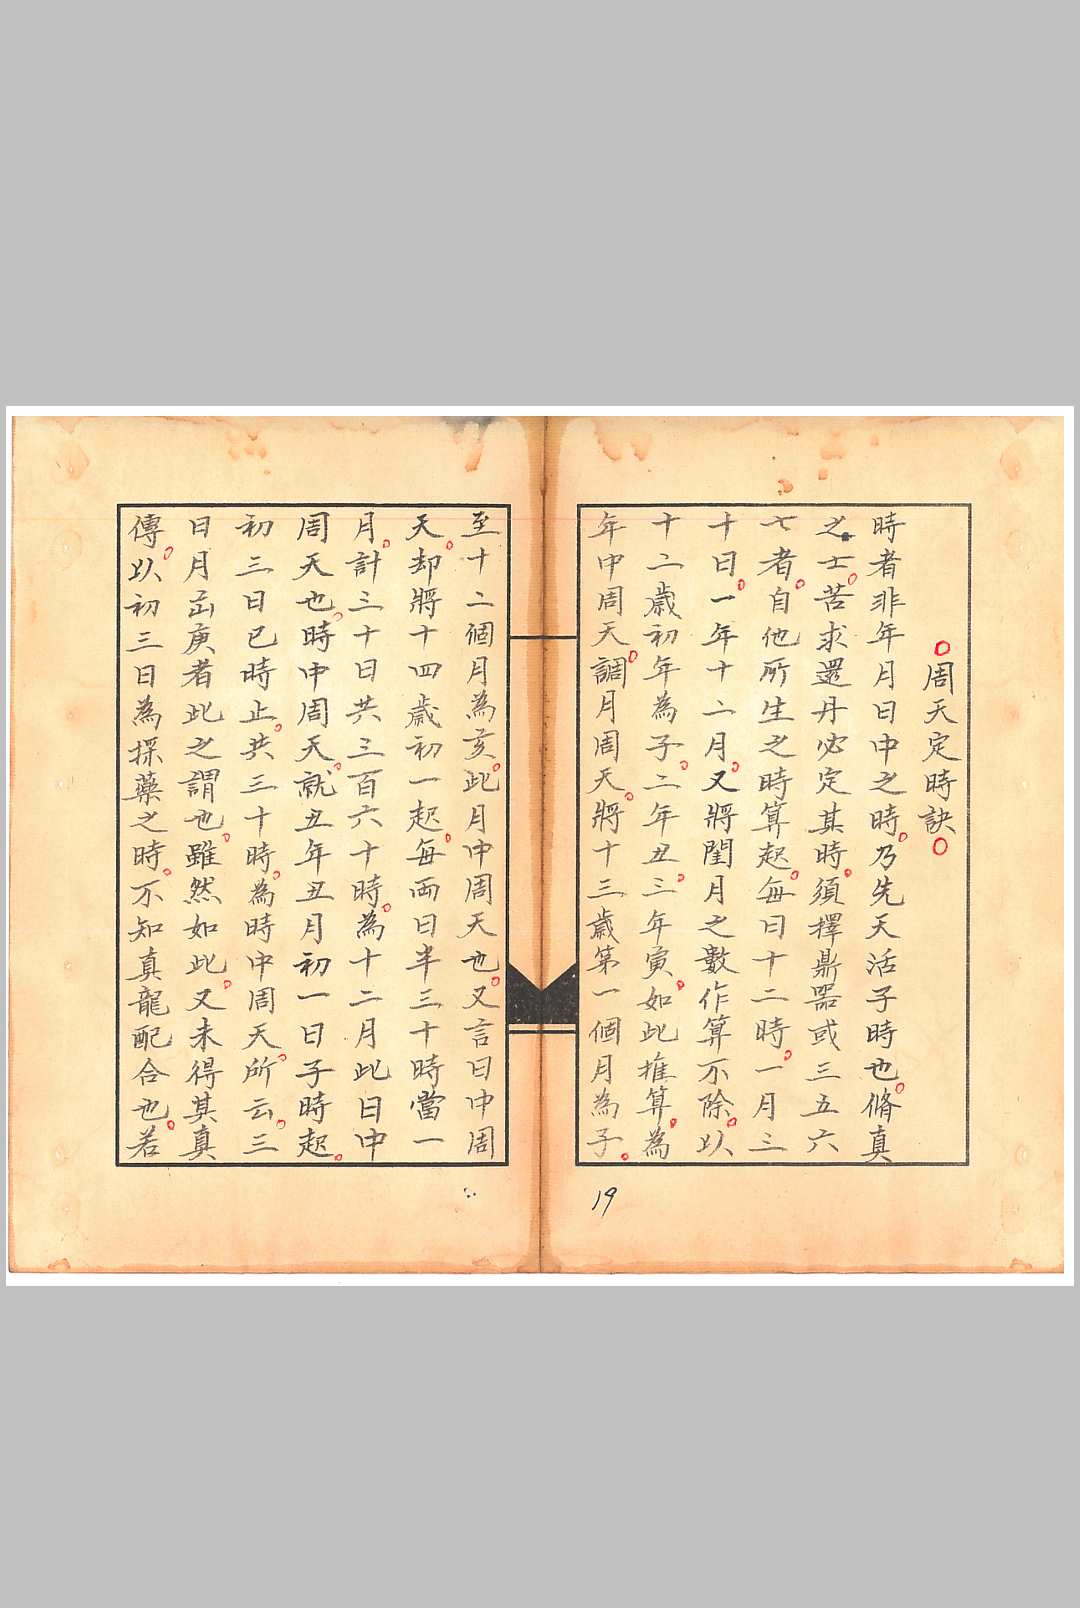 ○周天定時訣○
時者非年月日中之時。乃先天活子時也。脩真
之士。苦求還丹必定其時。須擇鼎器或三五六
七者。自他所生之時算起。每日十二時。一月三
十日。一年十二月。又將閏月之數作算不除。以
十二歲初年為子。二年丑。三年寅。如此推算。為
年中周天。調月周天。將十三歲第一個月為子。
至十二個月為亥。此月中周天也。又言日中周
天。却將十四歲初一起。每両日半三十時當一
月。計三十日共三百六十時。為十二月此日中
周天也。時中周天。就丑年丑月初一日子時起。
初三日巳時止。共三十時。為時中周天。所云。三
日月出庚者此之謂也。雖然如此。又未得其真
傳。以初三日為採藥之時。不知真龍配合也。若
19